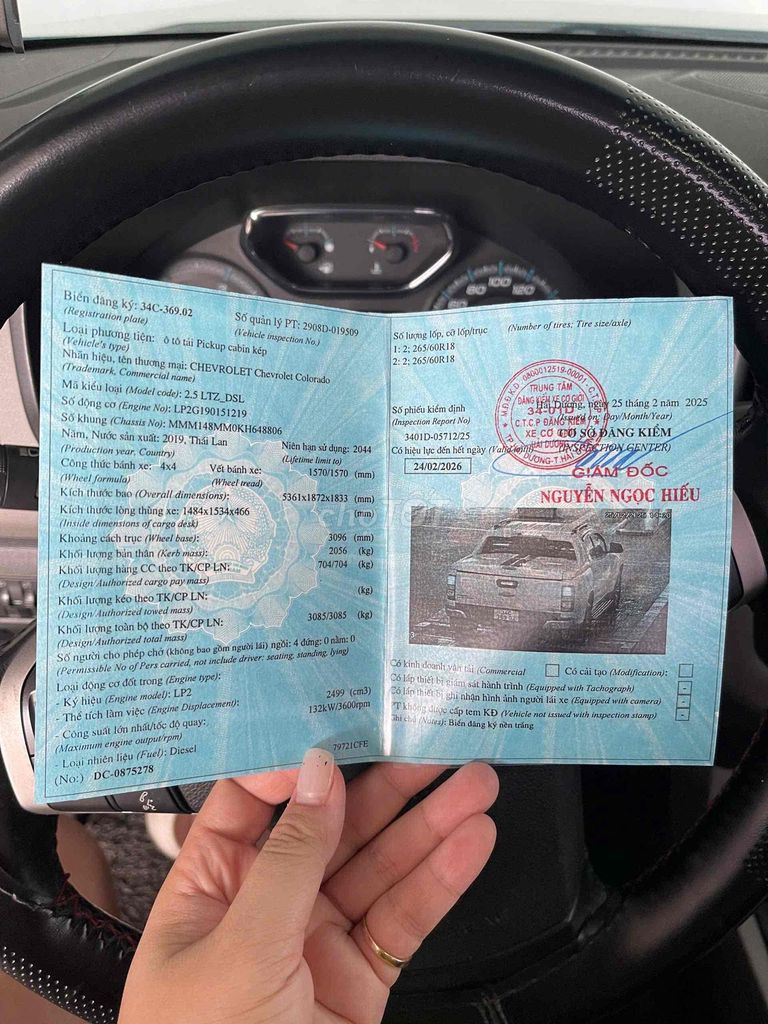 Biển đăng ký: 34C-369.02
(Registration plate)
Số quản lý PT: 2908D-019509
(Vehicle inspection No.)
Loại phương tiện: ô tô tải Pickup cabin kép
(Vehicle's type)
Nhãn hiệu, tên thương mại: CHEVROLET Chevrolet Colorado
(Trademark, Commercial name)
Mã kiểu loại (Model code): 2.5 LTZ_DSL
Số động cơ (Engine No): LP2G190151219
Số khung (Chassis No): MMM148MM0KH648806
Năm, Nước sản xuất: 2019, Thái Lan
(Production year, Country)
Niên hạn sử dụng: 2044
(Lifetime limit to)
Công thức bánh xe: 4x4
(Wheel formula)
Vết bánh xe: 1570/1570 (mm)
(Wheel tread)
Kích thước bao (Overall dimensions): 5361x1872x1833 (mm)
Kích thước lòng thùng xe: 1484x1534x466 (mm)
(Inside dimensions of cargo desk)
Khoảng cách trục (Wheel base): 3096 (mm)
Khối lượng bản thân (Kerb mass): 2056 (kg)
Khối lượng hàng CC theo TK/CP LN: 704/704 (kg)
(Design/Authorized cargo pay mass)
Khối lượng kéo theo TK/CP LN: (kg)
(Design/Authorized towed mass)
Khối lượng toàn bộ theo TK/CP LN: 3085/3085 (kg)
(Design/Authorized total mass)
Số người cho phép chở (không bao gồm người lái) ngồi: 4 đứng: 0 nằm: 0
(Permissible No of Pers carried, not include driver: seating, standing, lying)
Loại động cơ đốt trong (Engine type):
- Ký hiệu (Engine model): LP2
- Thể tích làm việc (Engine Displacement): 2499 (cm3)
- Công suất lớn nhất/tốc độ quay: 132kW/3600rpm
(Maximum engine output/rpm)
- Loại nhiên liệu (Fuel): Diesel
79721CFE
(No:) DC-0875278
Số lượng lốp, cỡ lốp/trục (Number of tires; Tire size/axle)
1: 2; 265/60R18
2: 2; 265/60R18
Hải Dương, ngày 25 tháng 2 năm 2025
(Issued on: Day/Month/Year)
Số phiếu kiểm định
(Inspection Report No)
3401D-05712/25
CƠ SỞ ĐĂNG KIỂM
(INSPECTION CENTER)
Có hiệu lực đến hết ngày (Valid until)
24/02/2026
M.S.D.N: 0800012519-00001-C.T.C.P
TRUNG TÂM
ĐĂNG KIỂM XE CƠ GIỚI
34-01D
C.T.C.P ĐĂNG KIỂM
XE CƠ GIỚI
HẢI DƯƠNG
GIÁM ĐỐC
NGUYỄN NGỌC HIẾU
Có kinh doanh vận tải (Commercial
Có cải tạo (Modification):
Có lắp thiết bị giám sát hành trình (Equipped with Tachograph)
Có lắp thiết bị ghi nhận hình ảnh người lái xe (Equipped with camera)
PT không được cấp tem KĐ (Vehicle not issued with inspection stamp)
Ghi chú (Notes): Biển đăng ký nền trắng
80 100 120